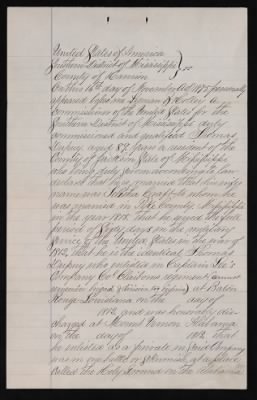 United States of America
Southern District of Mississippi } ss
County of Harrison
On this 16th day of November AD 1875 personally
appeared before me a
Commissioner of the United States for the
Southern District of Mississippi duly
commissioned and qualified Thomas
aged 87 years a resident of the
County of Jackson State of Mississippi
who being duly sworn according to law
declares that he is married that his wife's
name was to whom he
was married in Pike County Mississippi
in the year 18 that he served the full
period of Sixty days in the military
service of the United States in the war of
1812, that he is the identical Thomas
who enlisted in Captain
Company Col regiment (cannot
remember brigade or division) at Baton
Rouge Louisiana on the day of
1812 and was honorably dis
charged at Mount Vernon Alabama
on the day of 181 that
he enlisted as a private in said Company
was in no battle or skirmish at a place
called the Holy Ground on the Alabama